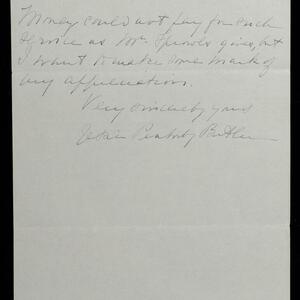 Money could not pay for such
service as Mr. gives, but
I want to make some mark of
my appreciation.
Very sincerely yours
Peabody Butler